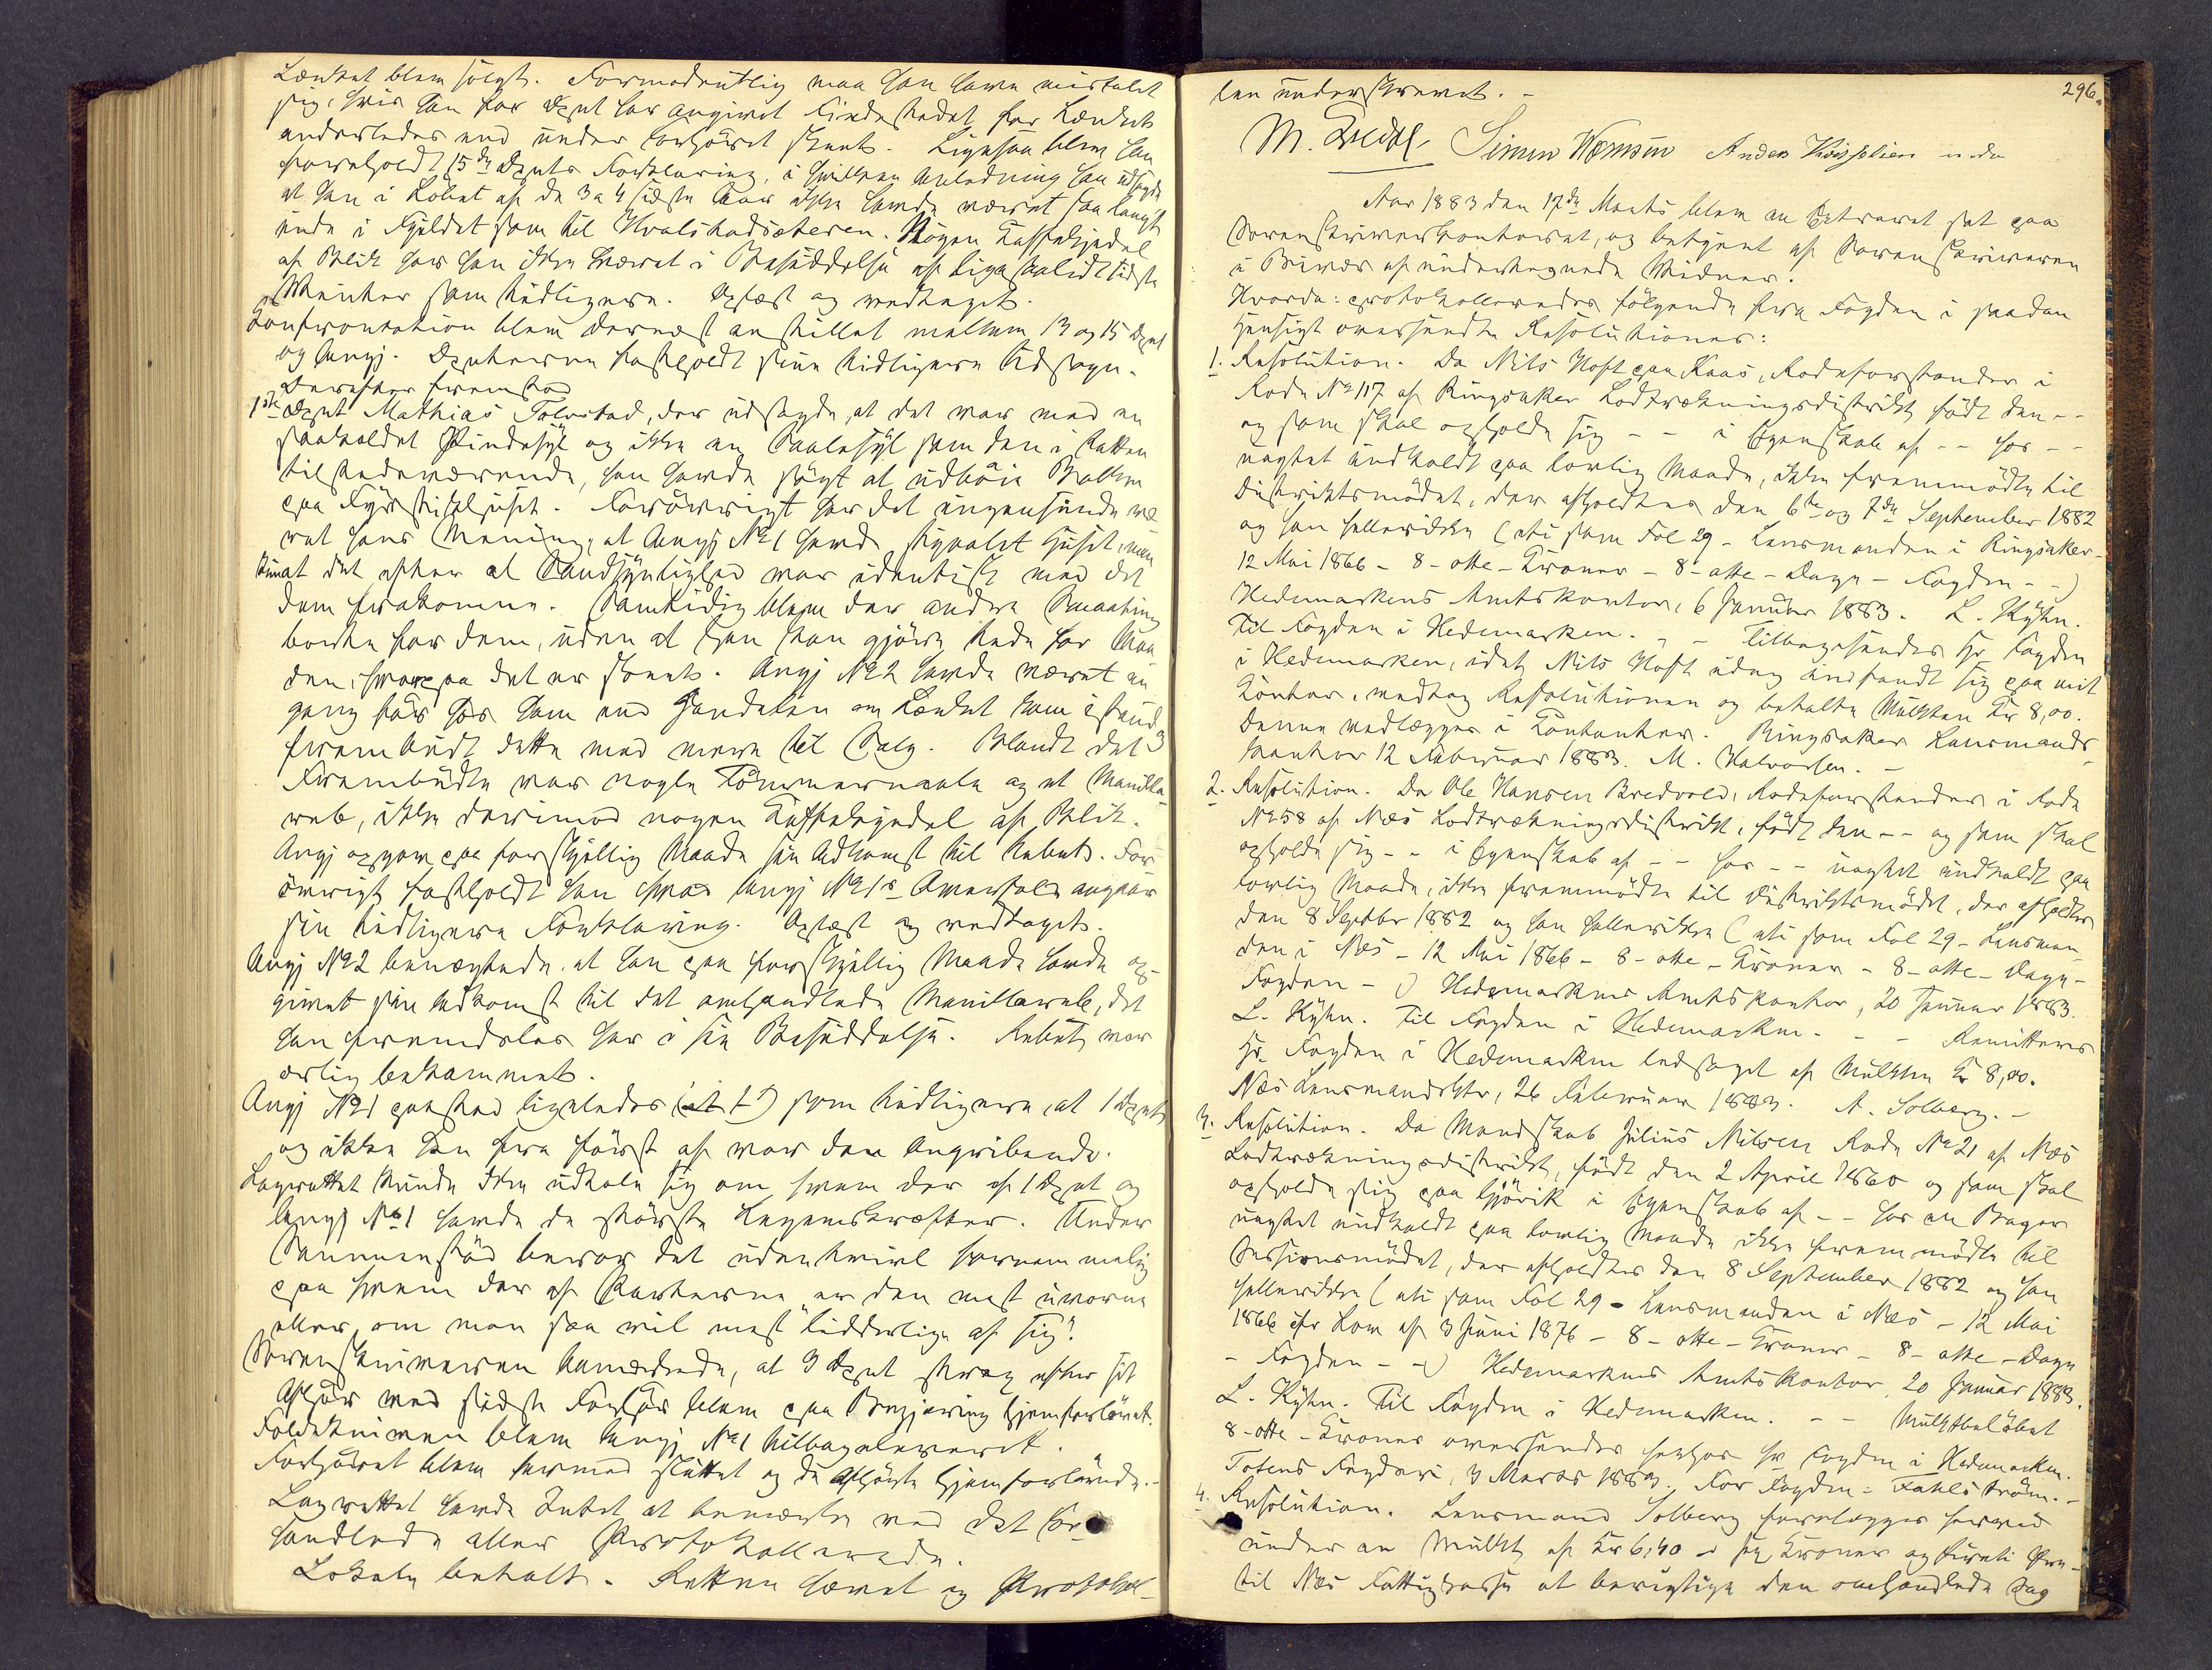 Lændset blev solgt. Formodentlig maa han have mistalet
sig, hvis han for Depnt har angivet Findestedet for Lændset
anderledes end under Forhöret skeet. Ligesaa blev han
foreholdt 15de Depnts Forklaring, i hvilken Anledning han udsagde
at han i Löbet af de 3 a 4 sidste Aar ikke havde været saa langt
inde i Fjeldet som til Kvalstadsæteren. Nogen Kaffekjedel
af Blik har han ikke været i Besiddelse af ligesaalidt sidste
Vinter som tidligere. Oplæst og vedtaget.
Konfrontation blev dernæst anstillet mellem 13 og 15 Depnt
og Angj. Depnterne fastholdt sine tidligere Udsagn.
Derefter fremstod
1ste Depnt Mathias Tolvstad, der udsagde, at det var med en
saakaldet Pindesyl og ikke en Saalesyl som den i Retten
tilstedeværende, han havde sögt at udböie
paa. Forövrigt har det ingensinde væ
ret hans Mening, at Angj No 1 havde stjaalet Huset, men
kun at det efter al Sandsynlighed var identisk med det
dem frakomne. Samtidig blev der andre Smaating
borte for dem, uden at han kan gjöre Rede for Maa
den, hvorpaa det er skeet. Angj No 2 havde været en
gang för hos ham end Handelen om Lændset kom istand,
frembudt dette med mere til Salg. Blandt det
Frembudte var nogle Tömmer og et Manilla
reb, ikke derimod nogen Kaffekjedel af Blik.
Angj opgav paa forskjellig Maade sin Adkomst til Rebet. For
övrigt fastholdt han hvad Angj No 1s Overfald angaar
sin tidligere Forklaring. Oplæst og vedtaget.
Angj No 2 benægtede, at han paa forskjellig Maade havde op-
givet sin Adkomst til det omhandlede Manillareb, det
han fremdeles har i sin Besiddelse. Rebet var
ærlig bekommet.
Angj No 1 paastod ligeledes som tidligere, at 1 Depnt
og ikke han fra först af var den Angribende.
Lagrettet kunde ikke udtale sig om hvem der af 1 Depnt og
Angj No 1 havde de störste Legemskræfter. Under
Sammenstöd beror det uden Tvivl fornemmelig
paa hvem der af Parterne er den mest uvorne
eller, om man saa vil mest "lidderlige af sig".
Sorenskriveren bemærkede, at 9 Depnt strax efter sit
Afhör ved sidste Forhör blev paa Begjæring hjemforlövet.
Foldekniven blev Angj No 1 tilbageleveret.
Forhöret blev hermed sluttet og de Afhörte hjemforlövede.-
Lagrettet havde Intet at bemærke ved det For
handlede eller Protokollerede.
Lokale betalt. Retten hævet og Protokol-
296.
len underskrevet. -
M. Simen Wernsen Anders Kvisplien m.d.
Aar 1883 den 17de Marts blev en Extraret sat paa
Sorenskriverkontoret, og betjent af Sorenskriveren
i Biværr af undertegnede Vidner.
Hvorda: protokolleredes fölgende fra Fogden i saadan
Hensigt oversendte Resolutioner:
1. Resolution. Da Nils Hoft paa Kaas, Rodeforstander i
Rode No 117 af Ringsaker Lodtrækningsdistrikt födt den - -
og som skal opholde sig - - i Egenskab af - - hos - -
uagtet indkaldt paa lovlig Maade, ikke fremmödte til
Distriktsmödet, der afholdtes den 6te og 7de September 1882
og han hellerikke (ati som Fol 29 - Lensmanden i Ringsaker -
12 Mai 1866 - 8 - otte - Kroner - 8 - otte - Dage - Fogden - -)
Hedemarkens Amtskontor, 6 Januar 1883. L. Kyhn.
Til Fogden i Hedemarken. - - Tilbagesendes Hr Fogden
i Hedemarken, idet Nils Hoft idag indfandt sig paa mit
Kontor, vedtog Resolutionen og betalte Mulkten Kr 8,00.
Denne vedlægges i Kontanter. Ringsaker Lensmands-
kontor 12 Februar 1883. M. Halvorsen. -
2. Resolution. Da Ole Hansen Bredvold, Rodeforstander i Rode
No 58 af Næs Lodtrækningsdistrikt, födt den - - og som skal
opholde sig - - i Egenskab af - - hos - - uagtet indkaldt paa
lovlig Maade, ikke fremmödte til Distriktsmödet, der afholdtes
den 8 Septbr 1882 og han hellerikke (ati som Fol 29 - Lensman-
den i Næs - 12 Mai 1866 - 8 - otte - Kroner - 8 - otte - Dage -
Fogden - ) Hedemarkens Amtskontor, 20 Januar 1883.
L. Kyhn. Til Fogden i Hedemarken. - - Remitteres
Hr. Fogden i Hedemarken ledsaget af Mulkten Kr 8,00.
Næs Lensmandsktr, 26 Februar 1883. A. Solberg. -
3. Resolution. Da Mandskab Julius Nilsen Rode No 21 af Næs
Lodtrækningsdistrikt, födt den 2 April 1860 og som skal
opholde sig paa Gjövik i Egenskab af - - hos en Bager
uagtet indkaldt paa lovlig Maade ikke fremmödte til
Sessionsmödet, der afholdtes den 8 September 1882 og han
hellerikke (ati som Fol 29 - Lensmanden i Næs - 12 Mai
1866 cfr Lov af 3 Juni 1876 - 8 - otte - Kroner - 8 - otte - Dage
- Fogden - -) Hedemarkens Amtskontor, 20 Januar 1883.
L. Kyhn. Til Fogden i Hedemarken. - - Mulktbelöbet
8 - otte - Kroner oversendes herhos Hr Fogden i Hedemarken.
Totens Fogderi, 3 Marts 1883. For Fogden: Fahlström. -
4. Resolution. Lensmand Solberg forelægges herved
under en Mulkt af Kr 6,40 - sex Kroner og firti Öre -
til Næs Fattigkasse at berigtige den omhandlede Sag